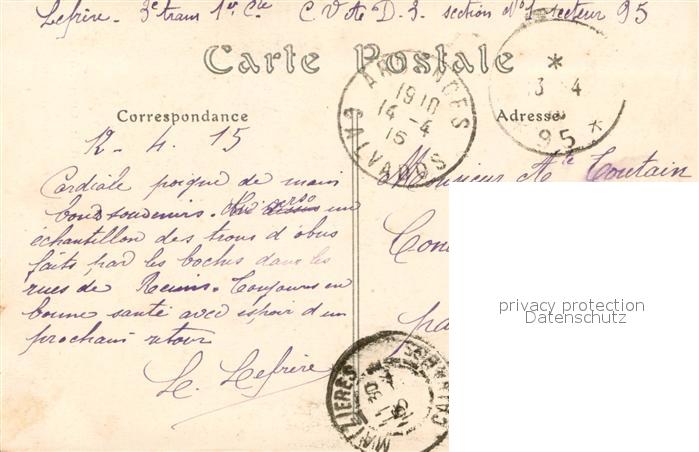 Lefrère. 3e tram 1er Cie C. V. A. D. 3. section No 1 secteur 95
Carte Postale
Correspondance
Adresse
ARGENCES
CALVADOS
1910
14 -4
15
*
13 4
95 *
12 - 4. 15
Cordiale poigné de main
bons souvenirs. un
échantillon des trous d'obus
faits par les bochs dans les
rues de Reims. Toujours en
bonne santé avec espoir d'un
prochain retour
L. Lefrère
Monsieur Ate Coutain
Con
pa
MEZIERES
CALVADOS
11 30
privacy protection
Datenschutz